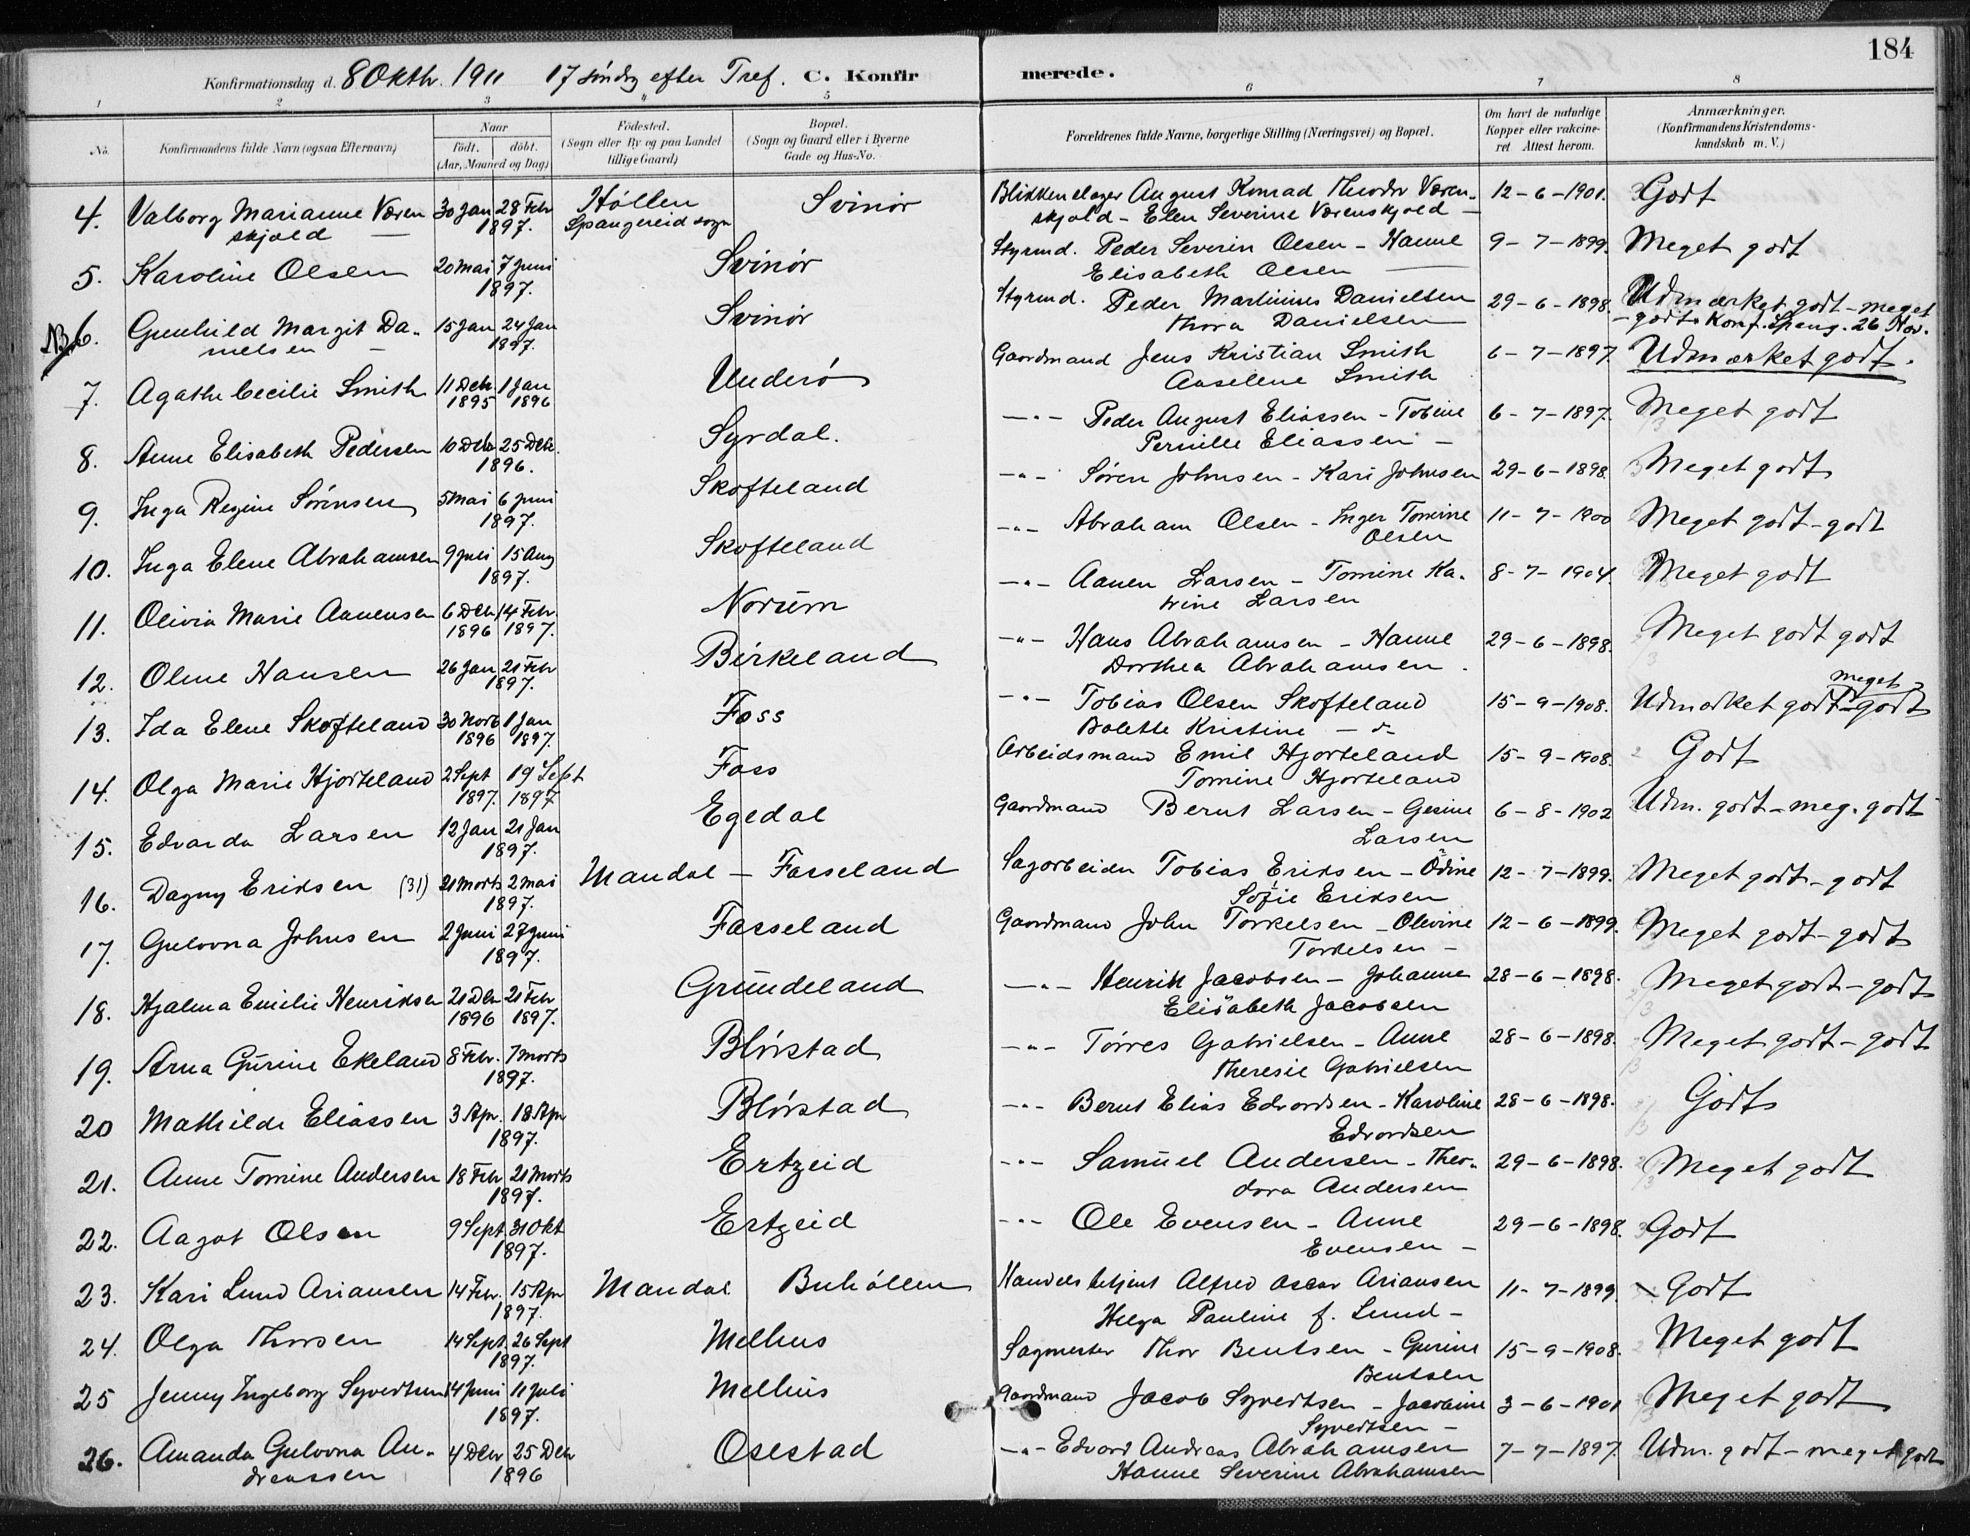 184
Konfirmationsdag d. 8 Oktbr. 1911 17 søndg efter Tref. C. Konfirmerede.
1 2 3 4 5 6 7 8
No. Konfirmandens fulde Navn (ogsaa Efternavn) Naar født. døbt. (Aar, Maaned og Dag) Fødested. (Sogn eller By og paa Landet tillige Gaard) Bopæl. (Sogn og Gaard eller i Byerne Gade og Hus-No. Forældrenes fulde Navne, borgerlige Stilling (Næringsvei) og Bopæl. Om havt de naturlige Kopper eller vakcineret Attest herom. Anmærkninger. (Konfirmandens Kristendomskundskab m. V.)
4. Valborg Marianne Væren 30 Jan 28 Febr Høllen Svinør Blikkenslager August Konrad Theodor Væren- 12-6-1901. Godt
skjold 1897. Spangereid sogn skjold - Elen Severine Værenskjold
5. Karoline Olsen 20 Mai 7 Juni Svinør Styrmd. Peder Severin Olsen - Hanne 9-7-1899. Meget godt
1897. Elisabeth Olsen
NB. 6. Gunhild Margit Da- 15 Jan 24 Jan Svinør Styrmd. Peder Martinius Danielsen 29-6-1898. Udmærket godt - meget
nielsen 1897. Thora Danielsen - godt. Konf. Spang. 26 Nov.
7. Agathe Cecilie Smith 11 Dcb. 1 Jan Underø Gaardmand Jens Kristian Smith 6-7-1897 Udmærket godt.
1895 1896 Anselene Smith
8. Anne Elisabeth Pedersen 10 Dcbr 25 Dcbr. Syrdal. -"- Peder August Eliassen - Tobine 6-7-1897. Meget godt
1896. Pernille Eliassen -
9. Inga Regine Sørensen 5 Mai 6 Juni Skofteland -"- Søren Johnsen - Kari Johnsen 29-6-1898. Meget godt
1897.
10. Inga Elene Abrahamsen 9 Juli 15 Aug Skofteland -"- Abraham Olsen - Inger Tomine 11-7-1900 Meget godt - godt
1897. Olsen
11. Olivia Marie Aanensen 6 Dcbr 14 Febr. Norum -"- Aanen Larsen - Tomine Ka- 8-7-1904. Meget godt
1896 1897. trine Larsen
12. Oline Hansen 26 Jan 21 Febr Birkeland -"- Hans Abrahamsen - Hanne 29-6-1898. Meget godt godt
1897. Dorthea Abrahamsen.
13. Ida Elene Skofteland 30 Novb 1 Jan Foss -"- Tobias Olsen Skofteland 15-9-1908. Udmærket godt - meget godt
1896 1897. Bolette Kristine
14. Olga Marie Hjorteland 2 Sept 19 Sept Foss Arbeidsmand Emil Hjorteland 15-9-1908. Godt
1897. 1897 Tomine Hjorteland
15. Edvarda Larsen 12 Jan 21 Jan Egedal Gaardmand Bernt Larsen - Gesine 6-8-1902 Udm. godt - meg. godt
1897. Larsen
16. Dagny Eriksen (31) 21 Marts 2 Mai Mandal - Fasseland Sagarbeider Tobias Eriksen - Odine 12-7-1899. Meget godt - godt
1897. Sofie Eriksen
17. Gulovna Johnsen 2 Juni 27 Juni Fasseland Gaardmand John Torkelsen - Olivine 12-6-1899. Meget godt - godt
1897. Torkelsen -
18. Hjalma Emilie Henriksen 21 Dcbr 21 Febr Grundeland -"- Henrik Jacobsen - Johanne 28-6-1898. Meget godt - godt
1896 1897. Elisabeth Jacobsen
19. Arna Gurine Ekeland 8 Febr. 7 Marts Blørstad -"- Tørres Gabrielsen - Anne 28-6-1898. Meget godt - godt
1897. Theresie Gabrielsen
20 Mathilde Eliassen 3 Apr. 18 Apr Blørstad -"- Bernt Elias Edvardsen - Karoline 28-6-1898. Godt
1897. Edvardsen
21. Anne Tomine Andersen 18 Febr 21 Marts Ertzeid -"- Samuel Andersen - Theo- 29-6-1898. Meget godt
1897. dora Andersen
22. Aagot Olsen 9 Sept 31 Okt Ertzeid -"- Ole Evensen - Anne 29-6-1898. Godt
1897. Evensen -
23. Kari Lund Ariansen 14 Febr. 15 Apr Mandal Buhøllen Handelsbetjent Alfred Oscar Ariansen 11-7-1899. Godt
1897. Helga Pauline f. Lund -
24. Olga Thorsen 14 Sept. 26 Sept Melhus Sagmester Thor Bentsen - Gurine 15-9-1908. Meget godt
1897. Bentsen
25 Jenny Ingeborg Syvertsen 14 Juni 11 Juli Melhus Gaardmand Jacob Syvertsen - Jacobine 3-6-1901 Meget godt
1897. Syvertsen -
26. Amanda Gulovna An- 4 Dcbr 25 Dcbr Osestad -"- Edvard Andreas Abrahamsen 7-7-1897. Udm. godt - meget godt
dreassen 1896 Hanne Severine Abrahamsen